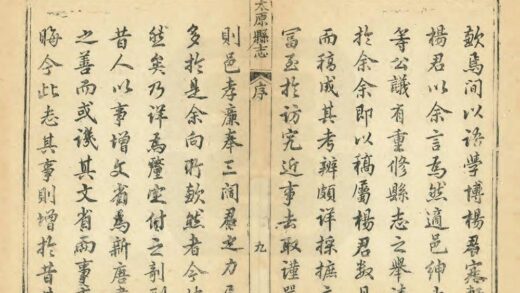 歉焉間以語學博楊君寒
楊君以余言爲然適邑紳士
等公議有重修縣志之舉
於余余即以稿屬楊君數月
而稿成其考辨頗詳採摭
富至於訪究近事去取謹
太原縣志 序 九
則邑孝廉奉三閻君之力
多於是余向所歉然者今
然矣乃詳爲釐定付之剞
昔人以事增文省爲新唐
之善而或議其文省而事
晦今此志其事則增於昔